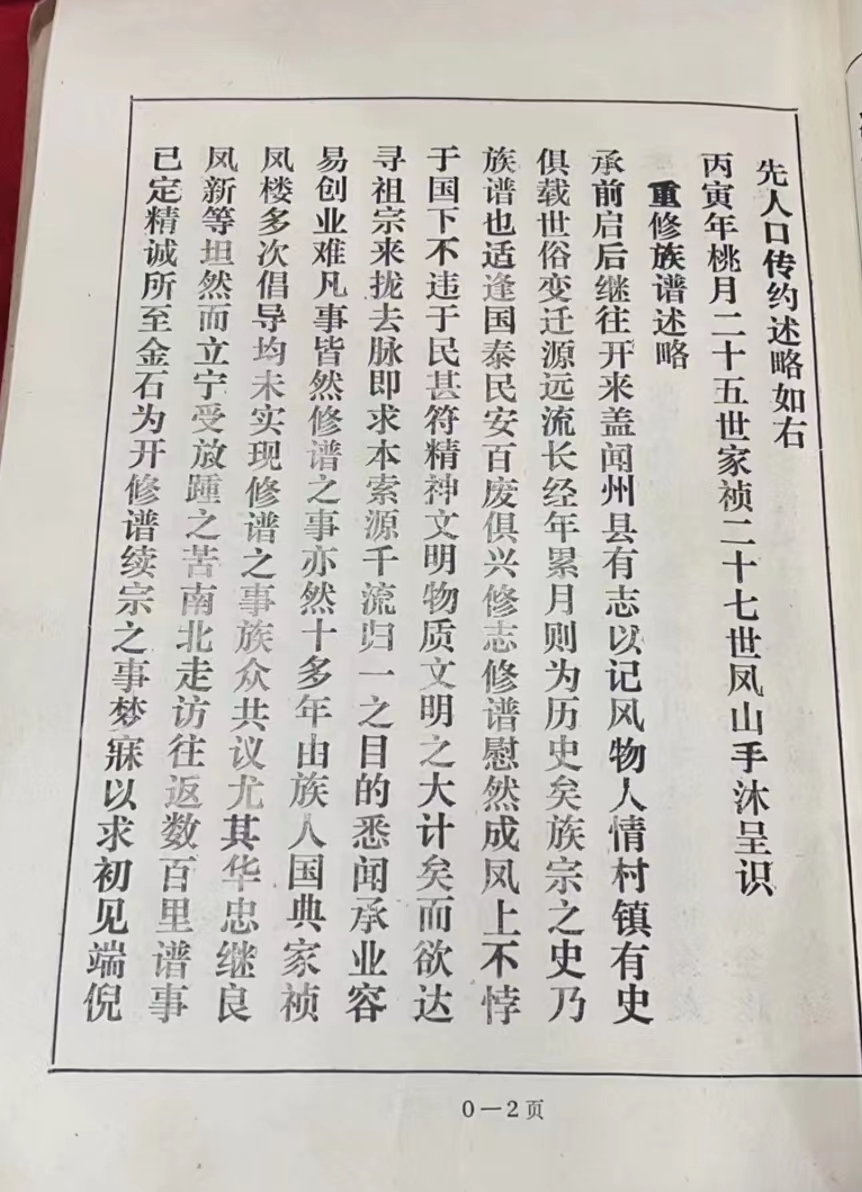 先人口传约述略如右
丙寅年桃月二十五世家祯二十七世凤山手沐呈识
重修族谱述略
承前启后继往开来盖闻州县有志以记风物人情村镇有史
俱载世俗变迁源远流长经年累月则为历史矣族宗之史乃
族谱也适逢国泰民安百废俱兴修志修谱慰然成风上不悖
于国下不违于民甚符精神文明物质文明之大计矣而欲达
寻祖宗来拢去脉即求本索源千流归一之目的悉闻承业容
易创业难凡事皆然修谱之事亦然十多年由族人国典家祯
凤楼多次倡导均未实现修谱之事族众共议尤其华忠继良
凤新等坦然而立宁受放踵之苦南北走访往返数百里谱事
已定精诚所至金石为开修谱续宗之事梦寐以求初见端倪
0－2页